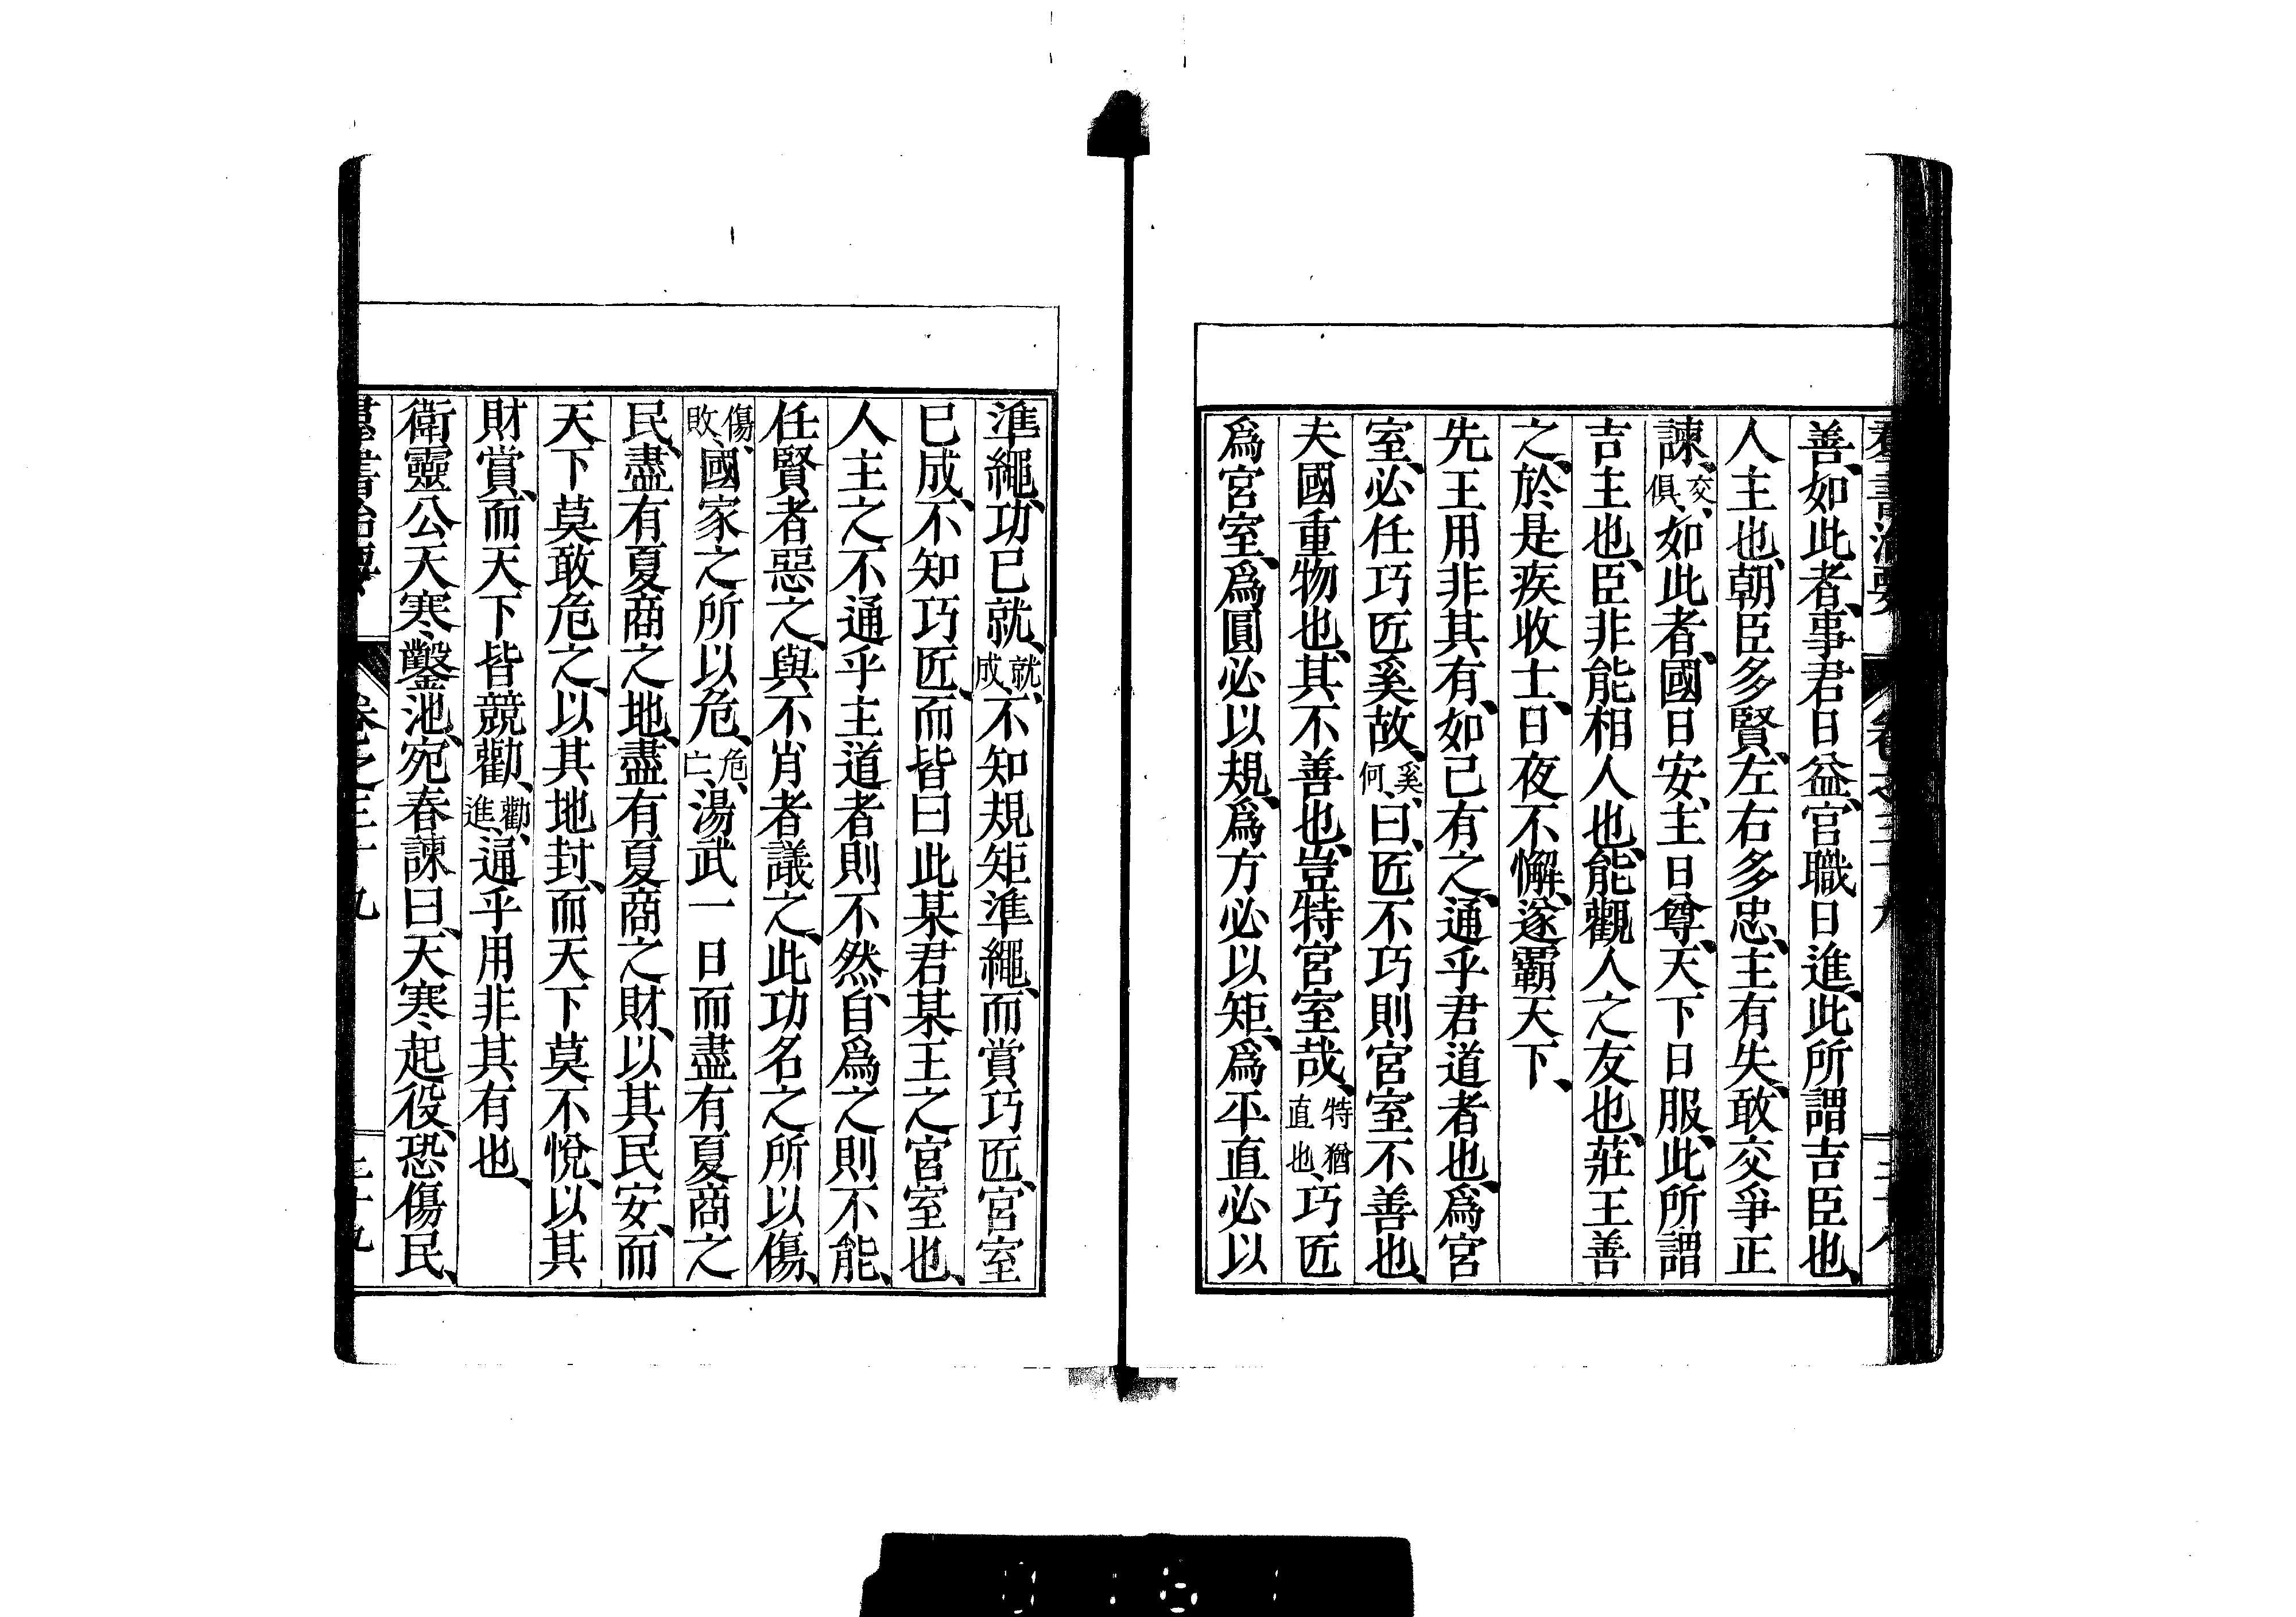 羣書治要 卷之三十九 三十八
善、如此者、事君日益、官職日進、此所謂吉臣也、
人主也、朝臣多賢、左右多忠、主有失、敢交爭正
諫、交、俱、如此者、國日安、主日尊、天下日服、此所謂
吉主也、臣非能相人也、能觀人之友也、莊王善
之、於是疾收士、日夜不懈、遂霸天下、
先王用非其有、如己有之、通乎君道者也、爲宮
室、必任巧匠奚故、奚、何、曰、匠不巧則宮室不善也、
夫國重物也、其不善也、豈特宮室哉、特猶直也、巧匠
爲宮室、爲圓必以規、爲方必以矩、爲平直必以
準繩、功已就、就、成、不知規矩準繩、而賞巧匠、宮室
已成、不知巧匠、而皆曰此某君某王之宮室也、
人主之不通乎主道者則不然、自爲之則不能、
任賢者惡之、與不肖者議之、此功名之所以傷、
傷、敗、國家之所以危、危、亡、湯武一日而盡有夏商之
民、盡有夏商之地、盡有夏商之財、以其民安、而
天下莫敢危之、以其地封、而天下莫不悅、以其
財賞、而天下皆競勸、勸、進、通乎用非其有也、
衛靈公天寒鑿池、宛春諫曰、天寒起役、恐傷民、
羣書治要 卷之三十九 三十九
0161